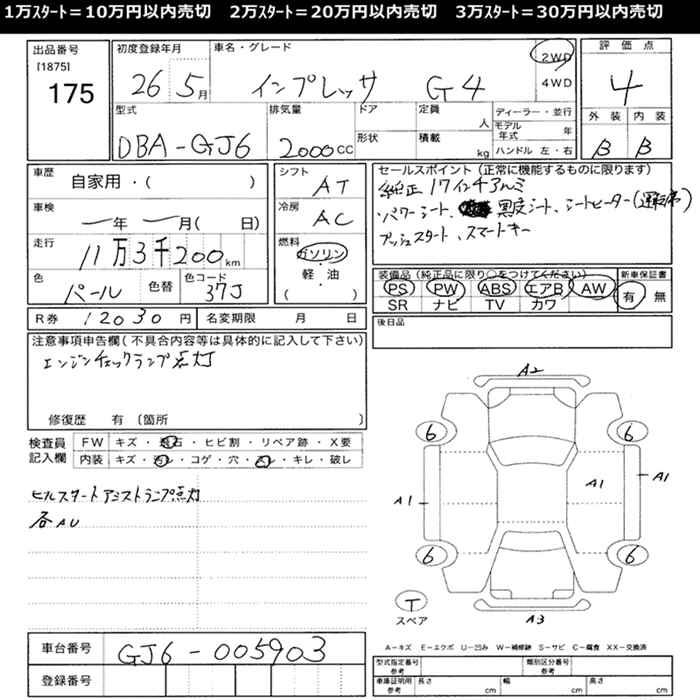 1万ｽﾀｰﾄ＝10万円以内売切　2万ｽﾀｰﾄ＝20万円以内売切　3万ｽﾀｰﾄ＝30万円以内売切
出品番号
[1875]
175
初度登録年月
26 5月
車名・グレード
インプレッサ G4
2WD
4WD
評価点
4
外装 内装
B B
型式
DBA-GJ6
排気量
2000CC
ドア
形状
定員
人
積載
kg
ディーラー・並行
モデル年式 年
ハンドル 左・右
車歴
自家用・( )
車検
年 月( 日)
走行
11万3千200km
色
パール
色替
色コード
37J
シフト
AT
冷房
AC
燃料
ガソリン
・
軽・油
( )
セールスポイント(正常に機能するものに限ります)
純正17インチアルミ
パワーシート、黒革シート、シートヒーター(運転席)
プッシュスタート、スマートキー
装備品(純正品に限り○をつけてください)
PS PW ABS エアB AW
SR ナビ TV カワ
新車保証書
有 無
R券 12030円
名変期限 月 日
後日品
注意事項申告欄(不具合内容等は具体的に記入して下さい)
エンジンチェックランプ点灯
修復歴 有 〔箇所 〕
検査員
記入欄
FW キズ・飛石・ヒビ割・リペア跡・X要
内装 キズ・・コゲ・穴・・キレ・破レ
ヒルスタートアシストランプ点灯
各AU
A2
6 6
A1 A1 A1
6 6
T
スペア
A3
車台番号
GJ6-005903
登録番号
A－キズ E－エクボ U－凹み W－補修跡 S－サビ C－腐食 XX－交換済
型式指定番号
参考
類別区分番号
参考
車庫証明用
参考
長さ cm
幅 cm
高さ cm